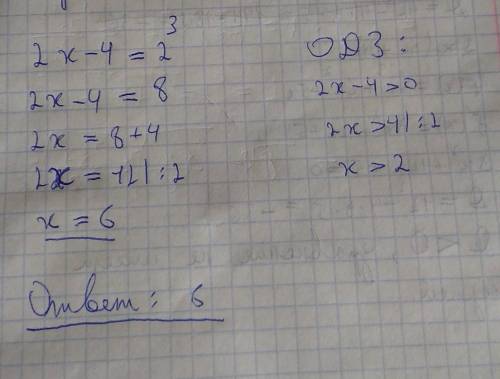 2x-4=2³
2x-4=8
2x=8+4
2x=12|:2
x=6
Ответ: 6
ОДЗ:
2x-4>0
2x>4|:2
x>2